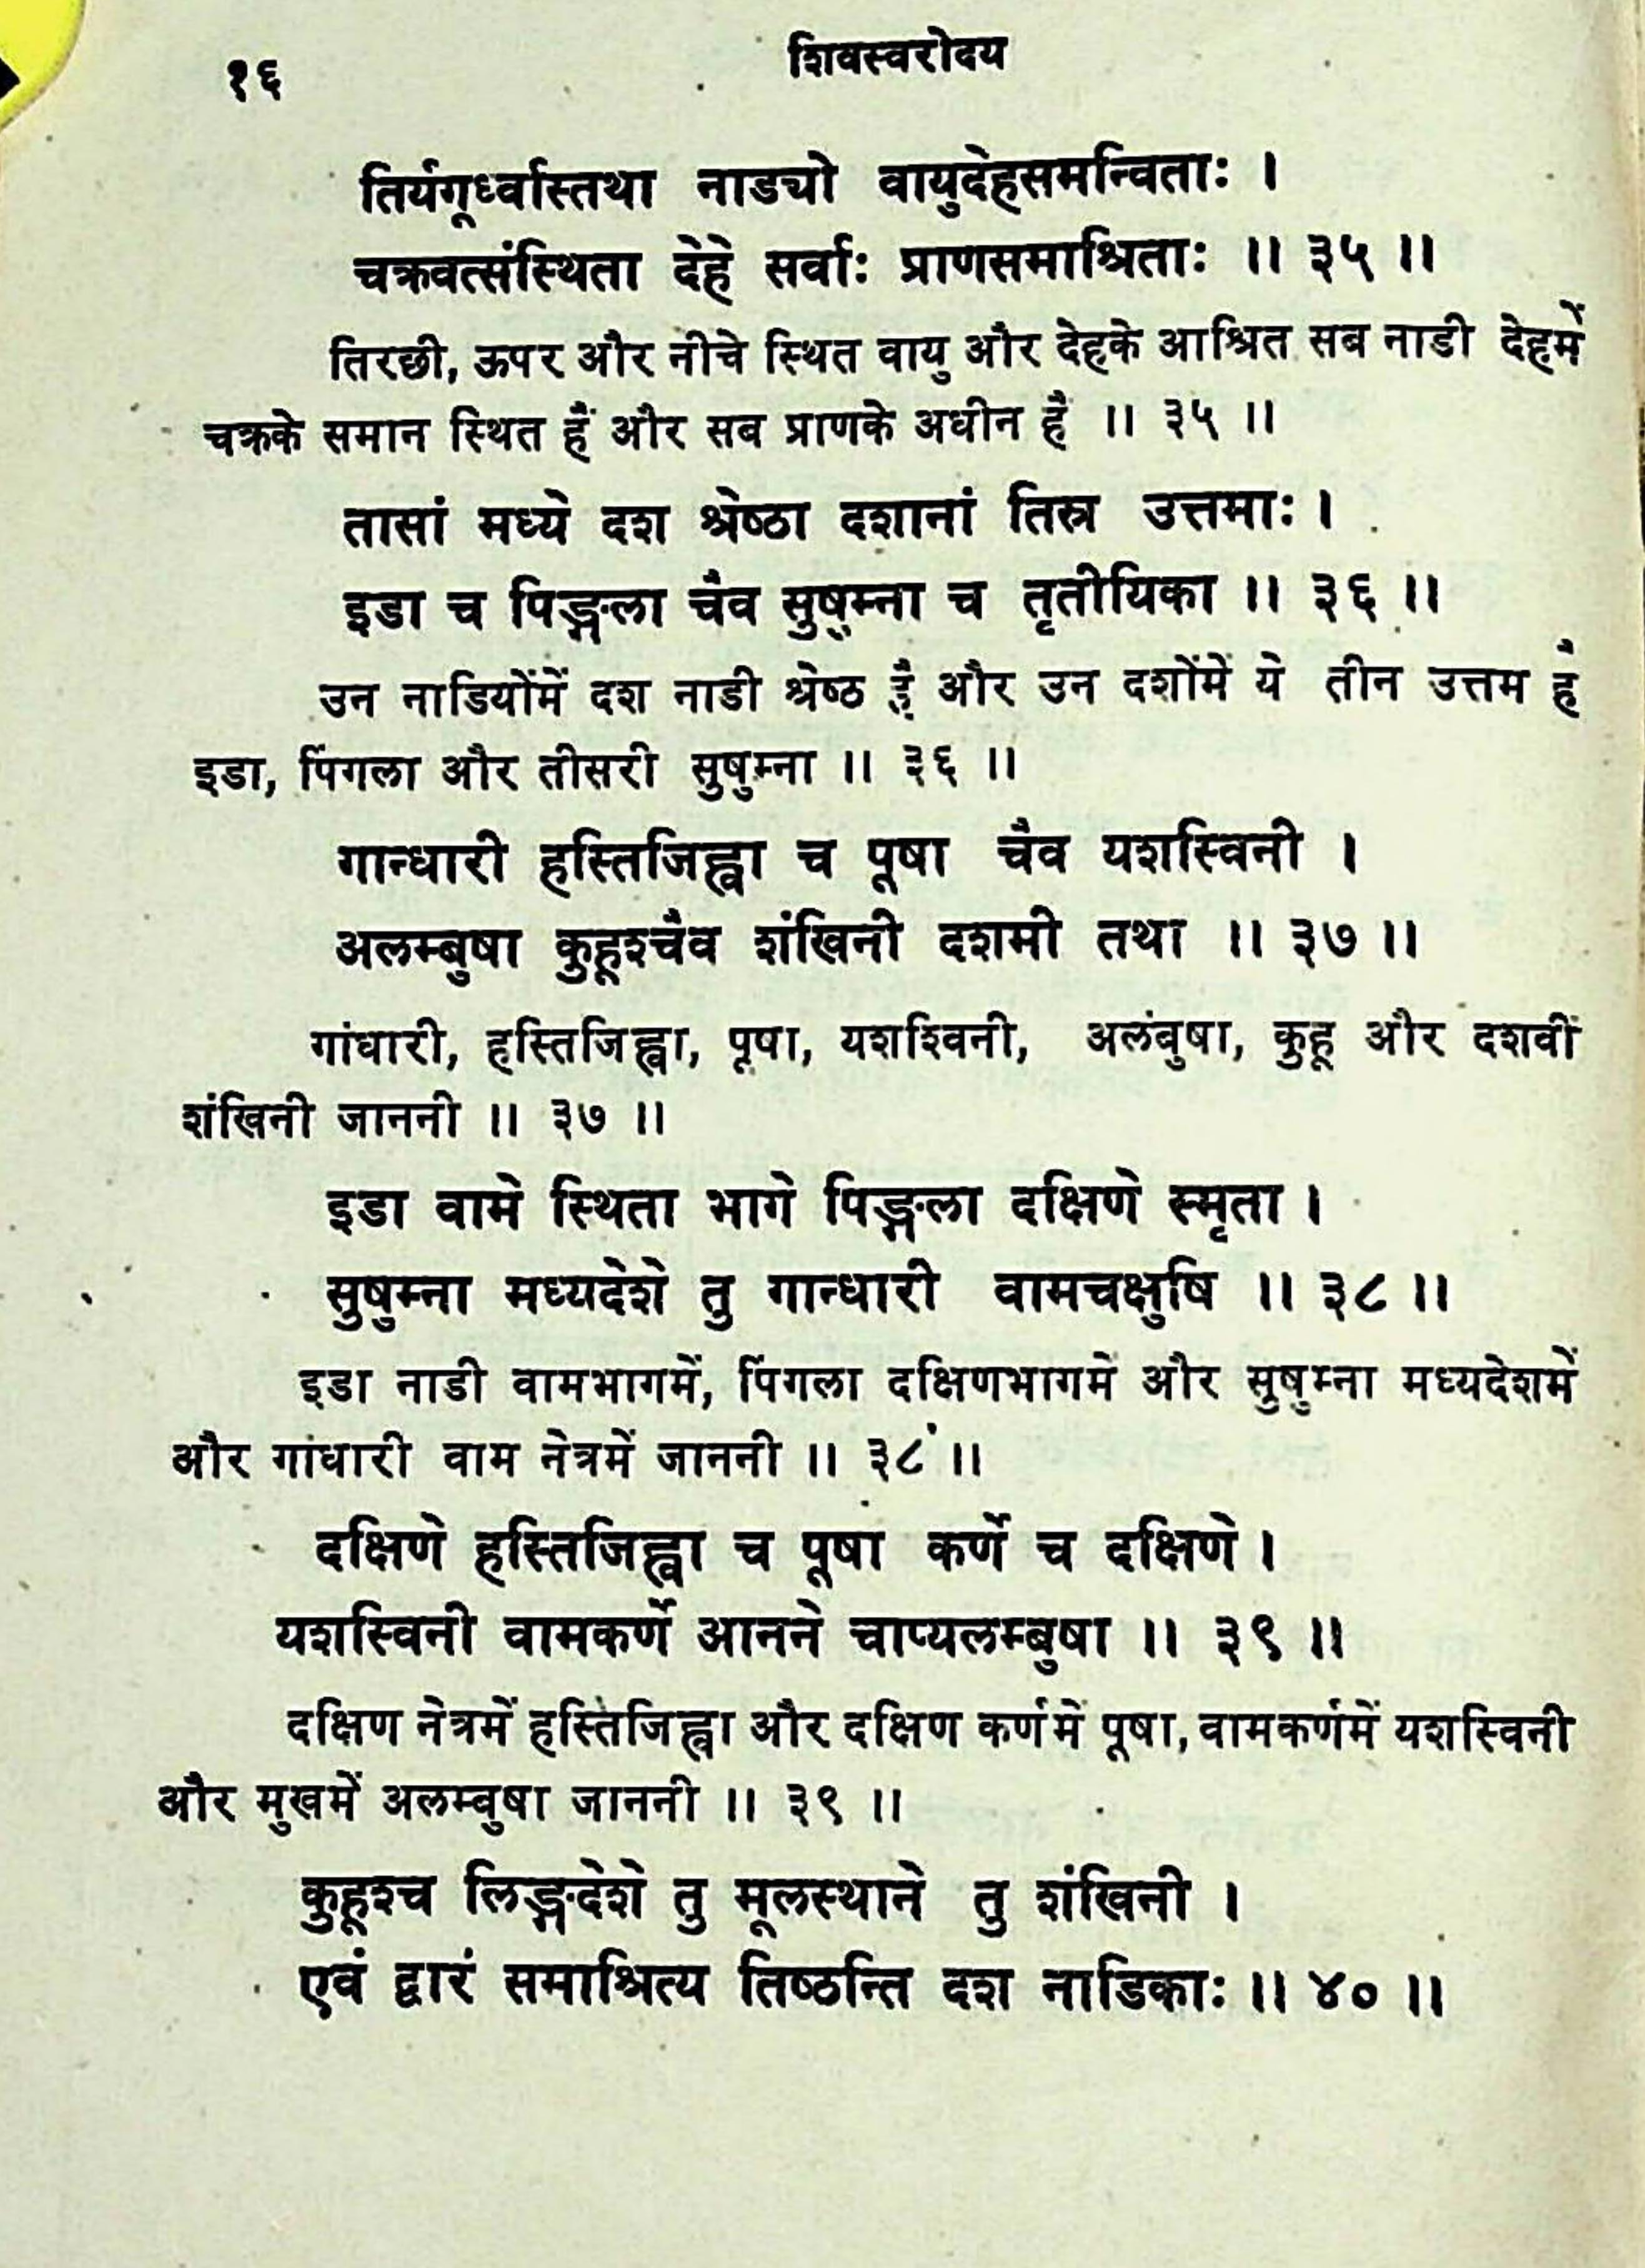 १६
शिवस्वरोदय
तिर्यगूर्ध्वास्तथा नाड्यो वायुदेहसमन्विताः ।
चक्रवत्संस्थिता देहे सर्वाः प्राणसमाश्रिताः ॥ ३५ ॥
तिरछी, ऊपर और नीचे स्थित वायु और देहके आश्रित सब नाडी देहमें
चक्रके समान स्थित हैं और सब प्राणके अधीन हैं ॥ ३५ ॥
तासां मध्ये दश श्रेष्ठा दशानां तिस्र उत्तमाः ।
इडा च पिङ्गला चैव सुषुम्ना च तृतीयिका ॥ ३६ ॥
उन नाडियोंमें दश नाडी श्रेष्ठ हैं और उन दशोंमें ये तीन उत्तम हैं
इडा, पिंगला और तीसरी सुषुम्ना ॥ ३६ ॥
गान्धारी हस्तिजिह्वा च पूषा चैव यशस्विनी ।
अलम्बुषा कुहूश्चैव शंखिनी दशमी तथा ॥ ३७ ॥
गांधारी, हस्तिजिह्वा, पूषा, यशश्विनी, अलंबुषा, कुहू और दशवीं
शंखिनी जाननी ॥ ३७ ॥
इडा वामे स्थिता भागे पिङ्गला दक्षिणे स्मृता ।
सुषुम्ना मध्यदेशे तु गान्धारी वामचक्षुषि ॥ ३८ ॥
इडा नाडी वामभागमें, पिंगला दक्षिणभागमें और सुषुम्ना मध्यदेशमें
और गांधारी वाम नेत्रमें जाननी ॥ ३८ ॥
दक्षिणे हस्तिजिह्वा च पूषा कर्णे च दक्षिणे ।
यशस्विनी वामकर्णे आनने चाप्यलम्बुषा ॥ ३९ ॥
दक्षिण नेत्रमें हस्तिजिह्वा और दक्षिण कर्णमें पूषा, वामकर्णमें यशस्विनी
और मुखमें अलम्बुषा जाननी ॥ ३९ ॥
कुहूश्च लिङ्गदेशे तु मूलस्थाने तु शंखिनी ।
एवं द्वारं समाश्रित्य तिष्ठन्ति दश नाडिकाः ॥ ४० ॥